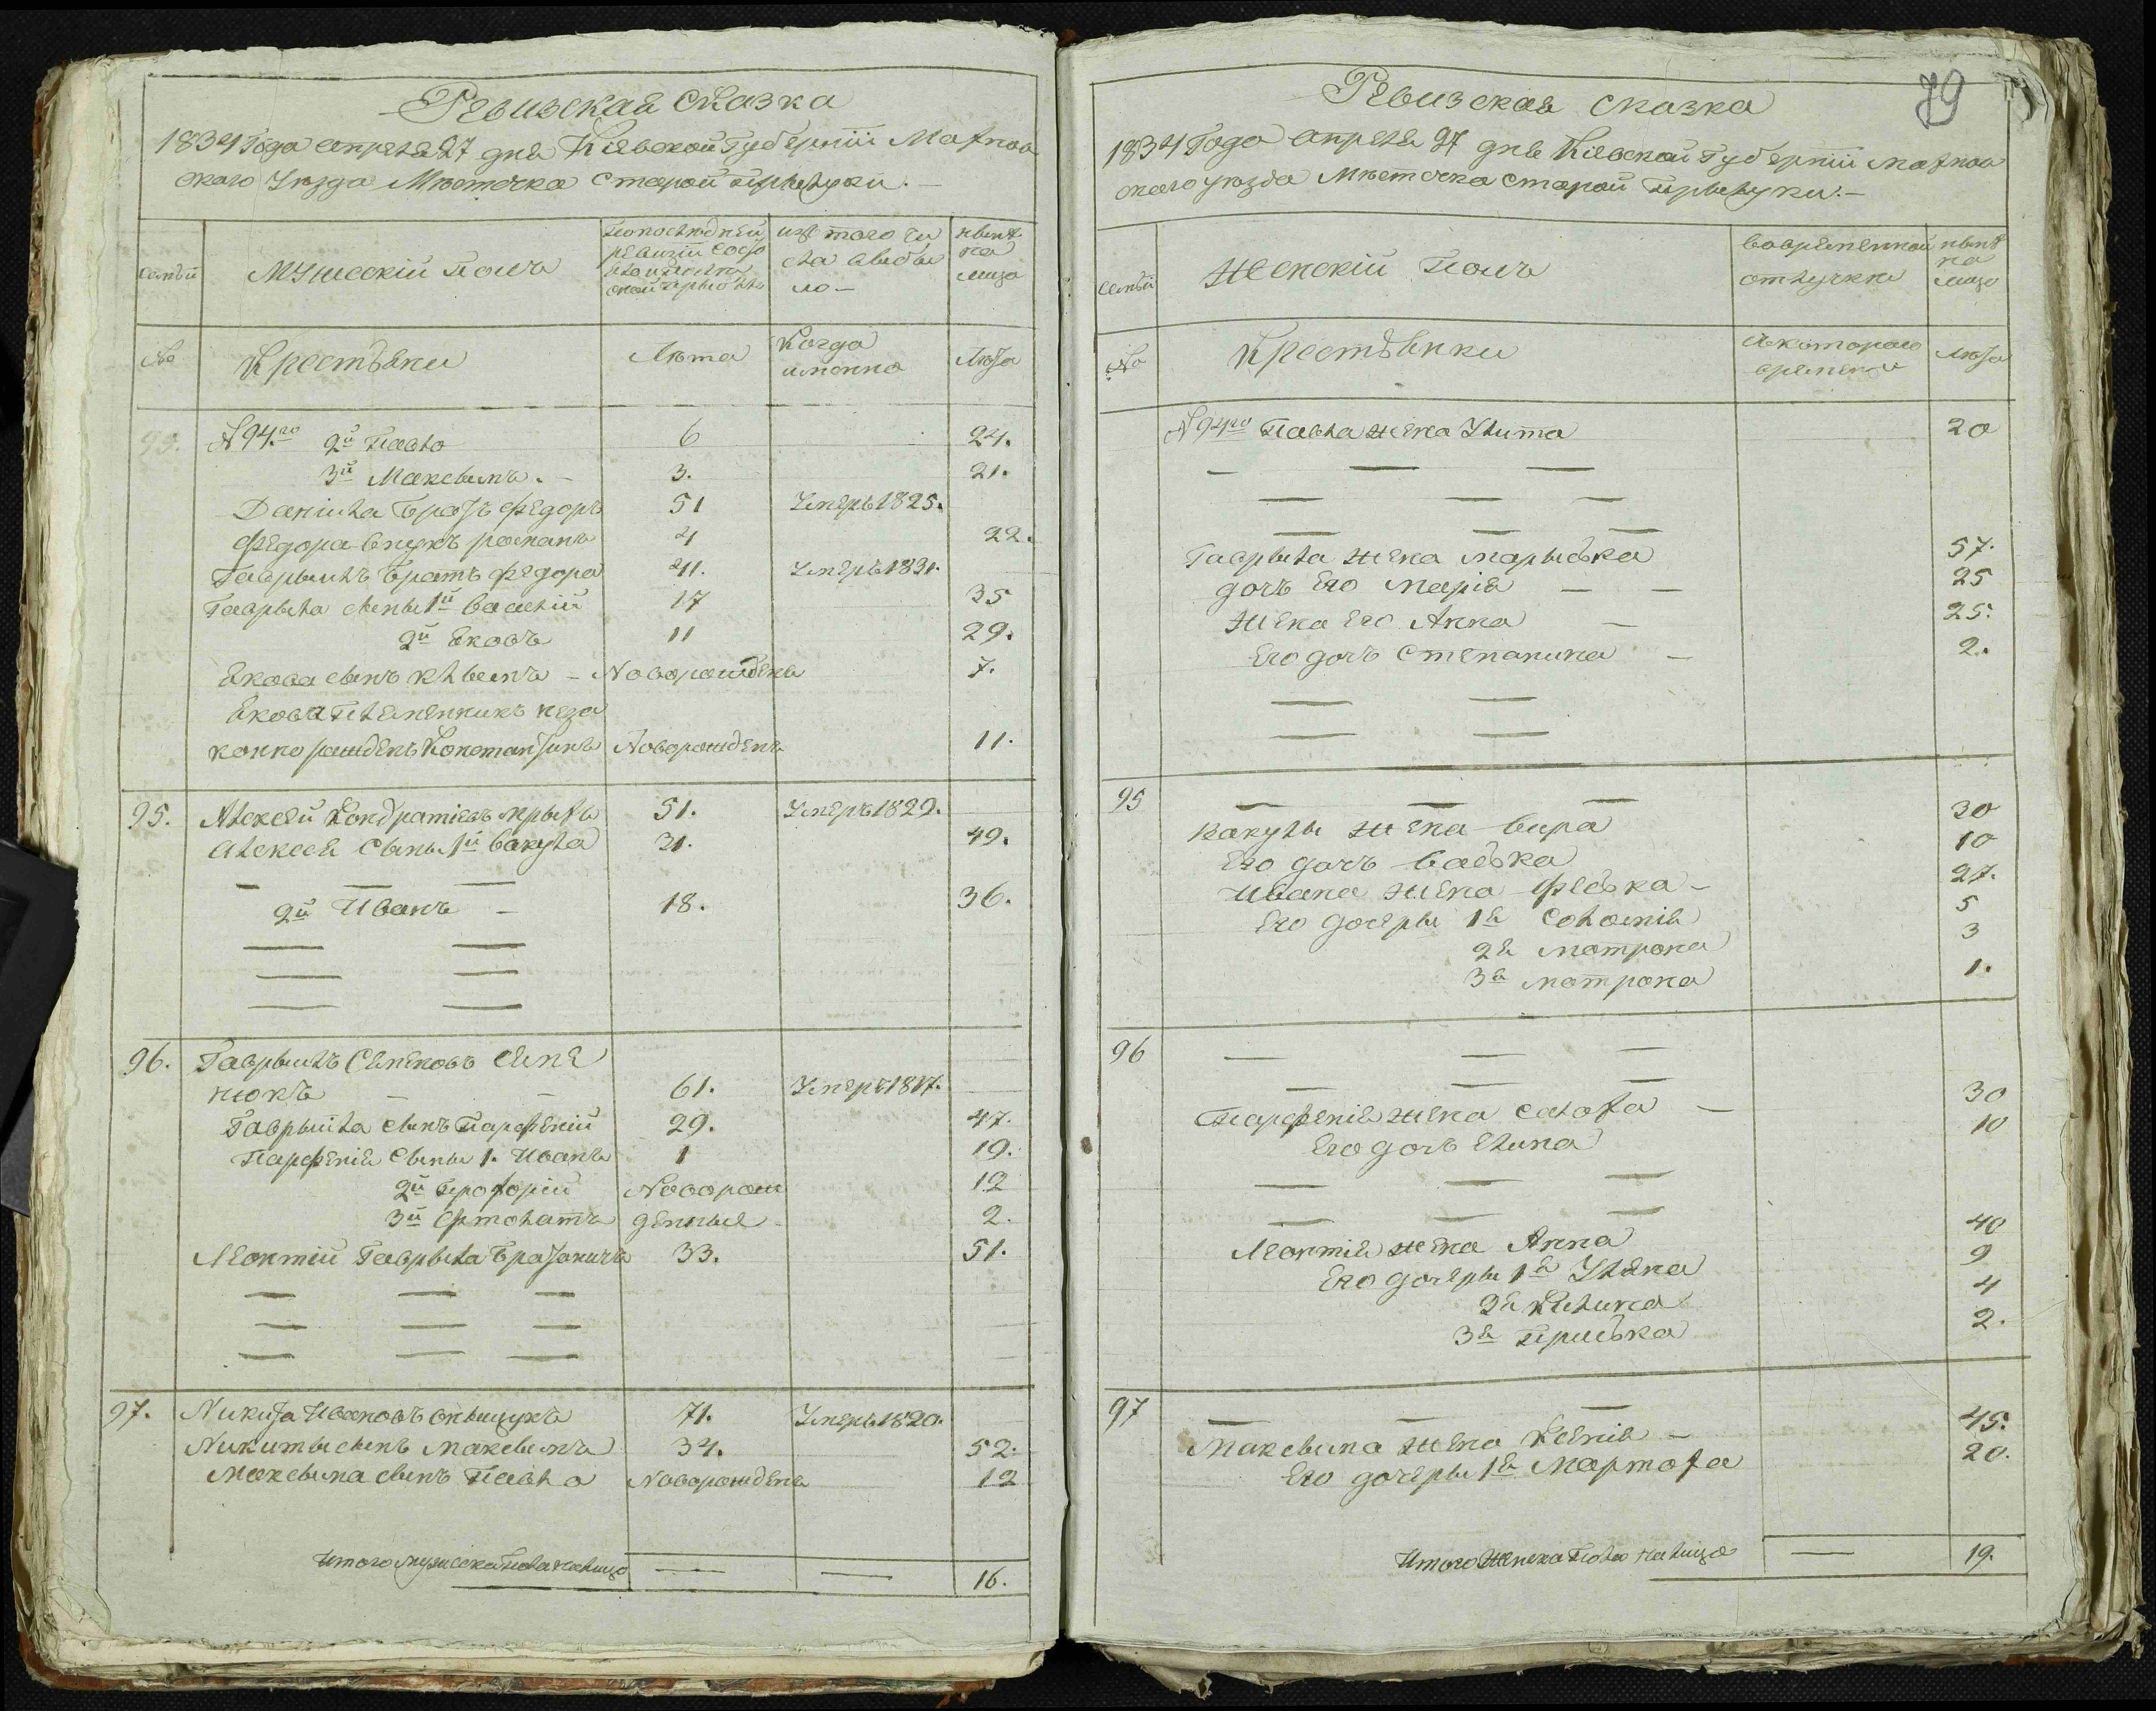 Ревизская сказка
1834 Года апреля 27 дня Кіевской Губерніи Махнов
скаго уезда Местечка Старой Прылуки. —
семьи
Мужескій полъ
по последней
ревизіи состо
яло и после
оной прыбыло
изъ того чи
сла выбы
ло —
ныне
на
лицо
№
Крестьяни
Лета
Когда
именно
Лета
93. N 94.го 2й Павло 6 24.
3й Максымъ. — 3. 21.
Данила братъ Федоръ 51 Умеръ 1825.
Федора внукъ романъ 4 22.
Гаврыилъ братъ Федора 41. Умеръ 1831.
Гаврыла сыны 1й Василій 17 35
2й Яковъ 11 29.
Якова сынъ Клымъ — Новорожденъ 7.
Якова племенникъ неза
конно рожденъ Константинъ Новорожденъ 11.
95. Алексей Кондратіевъ 51. Умеръ 1829.
Алексея Сыны 1й Вакула 31. 49.
2й Иванъ — 18. 36.
96. Гаврыилъ Семеновъ Семе
нюкъ — — 61. Умеръ 1817.
Гаврыила сынъ Парфеній 29. 47.
Парфенія Сыны 1. Иванъ 1 19.
2й Прохорій Новорож 12
3й Ермолатъ денные 2.
Леонтій Гаврыла братаничъ 33. 51.
97. Никита Ивановъ Оныщукъ 71. Умеръ 1820.
Никиты сынъ Максымъ 34. 52.
Максыма сынъ Павло Новорожденъ 12
Итого мужеска пола налицо — — 16.
79
Ревизская сказка
1834 Года апреля 27 дня Кіевской Губерніи Махнов
скаго уезда Местечка Старой Прылуки. —
семьи
Женскій полъ
во временной
отлучки
ныне
на
лицо
№
Крестьянки
Съ котораго
времени
лета
N 94го Павла жена Улита 20
Гаврыла жена Марыська 57.
дочъ Его Марія — — 25
Жена Его Анна — 25.
Его дочъ Степанина — 2.
95
Вакулы жена Вира 30
Его дочъ Васька 10
Ивана жена Феська — 27.
Его дочеры 1я Соломія 5
2я Мотрона 3
3я мотрона 1.
96
Парфенія жена Солоха — 30
Его дочъ Елина 10
Леонтія жена Анна 40
Его дочеры 1я Уляна 9
2я Килина 4
3яПриська 2.
97
Максыма жена Ксенія — 45.
Его дочеры 1я Мартоха 20.
Итого Женска Пола налицо — 19.